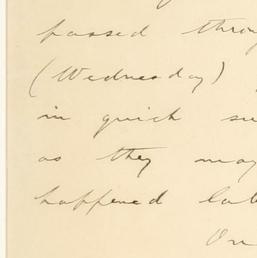 passed throu
(Wednesday)
in quick su
as they may
happened lat
On